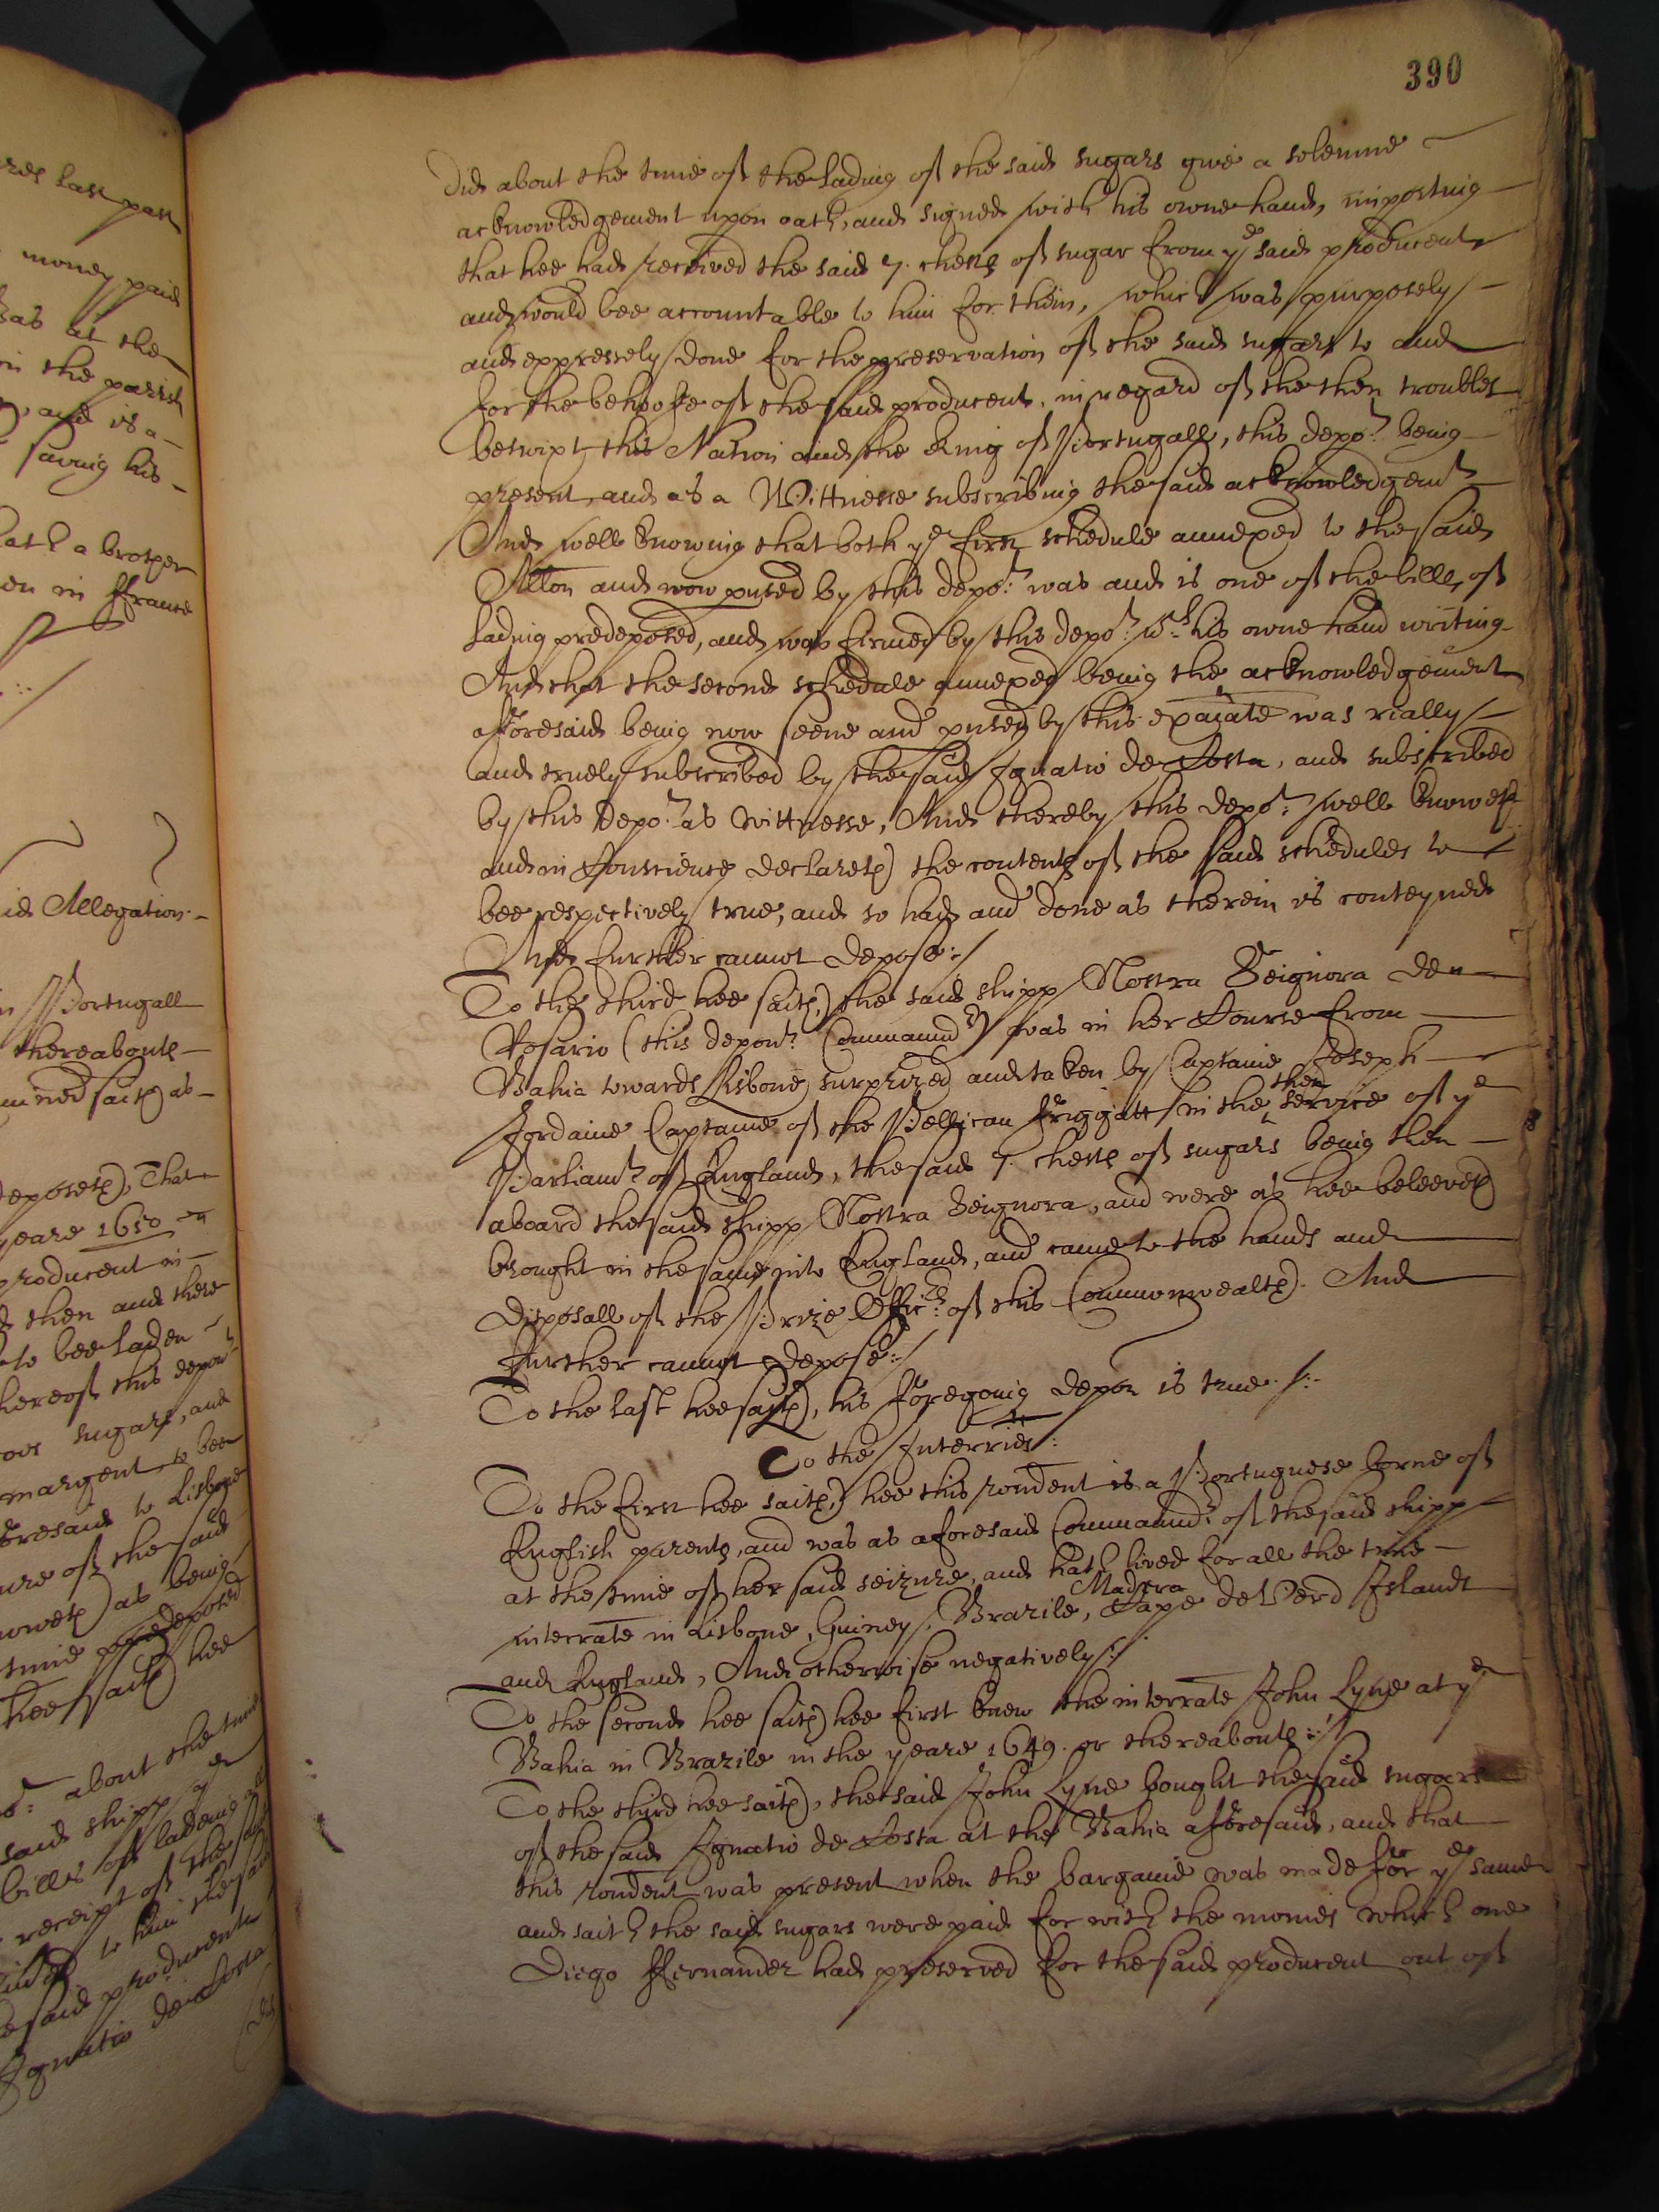 390
did about the time of the lading of the said sugars give a solemne
acknowledgement upon oath, and signed with his owne hand, importing
that hee had received the said 7. chests of sugar from ye said producent
and would bee accountable to him for them, which was purposely
and expressely done for the preservation of the said sugars to and
for the behoofe of the said producent, in regard of the then troubles
betwixt this Nation and the King of Portugall, this depot. being
present, and as a Wittnesse subscribing the said acknowledgemt
And well knowing that both ye first schedule annexed to the said
Allon and now pused by this depot: was and is one of the bills of
lading predeposed, and was firmed by this depot: wth his owne hand writing
And that the second schedule annexed being the acknowledgement
afforesaid being now seene and pused by this exaiate was really
and truely subscribed by the said Ignatio de Costa, and subscribed
by this depot. as Wittnesse, And thereby this depot: well knoweth
and in Conscience declareth the contents of the said schedules to
bee respectively true, and so had and done as therein is conteyned
And further cannot depose:/
To the third hee saith, the said shipp Nostra Seignora de
Rosario (this depont. Commandr) was in her Course from
Bahia towards Lisbone surprized and taken by Captaine Joseph
Jordaine Captaine of the Pellican friggatt in the then service of ye
Parliamt. of England, the said 7. chests of sugars being then
aboard the said shipp Nostra Seignora, and were as hee beleeveth
brought in the same into England, and came to the hands and
disposall of the Prize Officrs: of this Commonwealth. And
further cannot depose:/
To the last hee saith, his foregoing depon is true./:
To the Interries:
To the first hee saith, hee this rondent is a Portuguese borne of
English parents, and was as aforesaid Commandr. of the said shipp
at the time of her said seizure, and hath lived for all the time
interrate in Lisbone, Guiney, Brazile, Madera Cape de Verd Islands
and England, And otherwise negatively:/
To the second hee saith hee first knew the interrate John Lyne at ye
Bahia in Brazile in the yeare 1649. or thereabouts:/
To the third hee saith, the said John Lyne bought the said sugars
of the said Ignatio de Costa at the Bahia afforesaid, and that
this rondent was present when the bargaine was made for ye same
and saith the said sugars were paid for with the monies which one
Diego ffernandez had preserved for the said producent out of